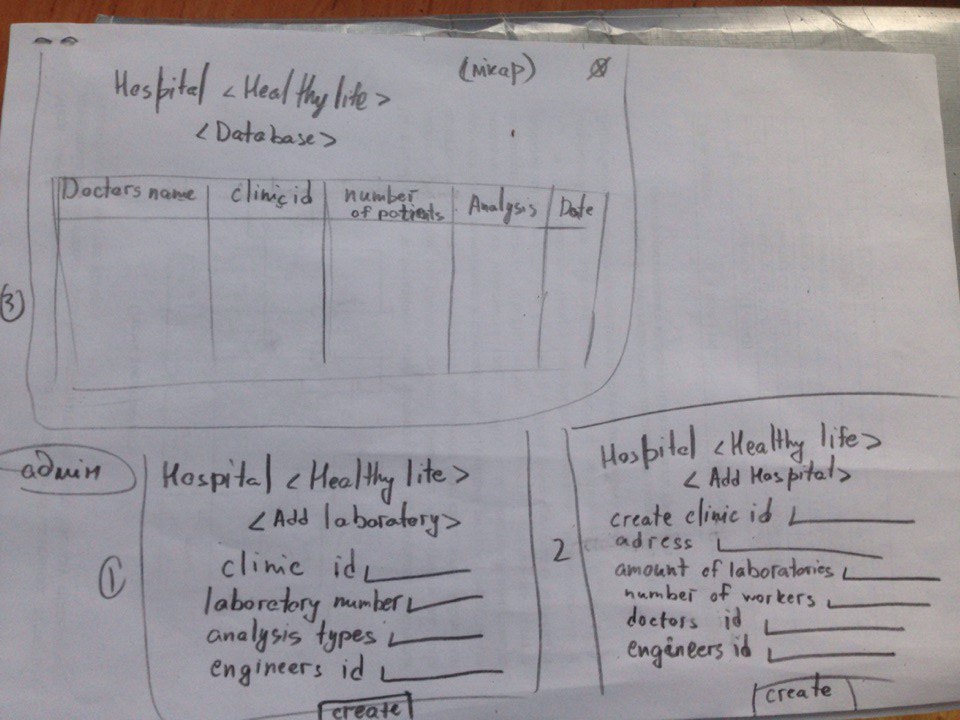 Hospital <Healthy life>
<Database>
Doctors name clinic id number of patients Analysis Date
3
admin
1
Hospital <Healthy life>
<Add laboratory>
clinic id
laboratory number
analysis types
engineers id
create
2
Hospital <Healthy life>
<Add Hospital>
create clinic id
adress
amount of laboratories
number of workers
doctors id
engineers id
create